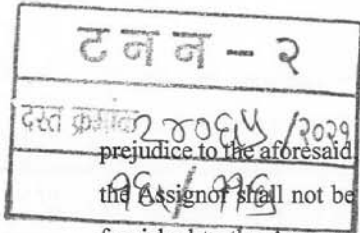 ट न न - २
दस्त क्रमांक २४०६५ /२०२१
prejudice to the aforesaid
१६ / ११६
the Assignor shall not be